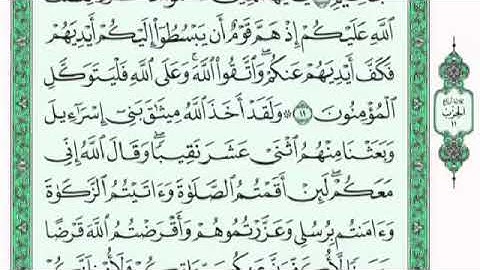 ٱللَّهِ عَلَيْكُمْ إِذْ هَمَّ قَوْمٌ أَن يَبْسُطُوٓا۟ إِلَيْكُمْ أَيْدِيَهُمْ
فَكَفَّ أَيْدِيَهُمْ عَنكُمْ ۖ وَٱتَّقُوا۟ ٱللَّهَ ۚ وَعَلَى ٱللَّهِ فَلْيَتَوَكَّلِ
ٱلْمُؤْمِنُونَ ١١ ۞ وَلَقَدْ أَخَذَ ٱللَّهُ مِيثَٰقَ بَنِىٓ إِسْرَٰٓءِيلَ
وَبَعَثْنَا مِنْهُمُ ٱثْنَىْ عَشَرَ نَقِيبًا ۖ وَقَالَ ٱللَّهُ إِنِّى
مَعَكُمْ ۖ لَئِنْ أَقَمْتُمُ ٱلصَّلَوٰةَ وَءَاتَيْتُمُ ٱلزَّكَوٰةَ
وَءَامَنتُم بِرُسُلِى وَعَزَّرْتُمُوهُمْ وَأَقْرَضْتُمُ ٱللَّهَ قَرْضًا
الحزب
١١